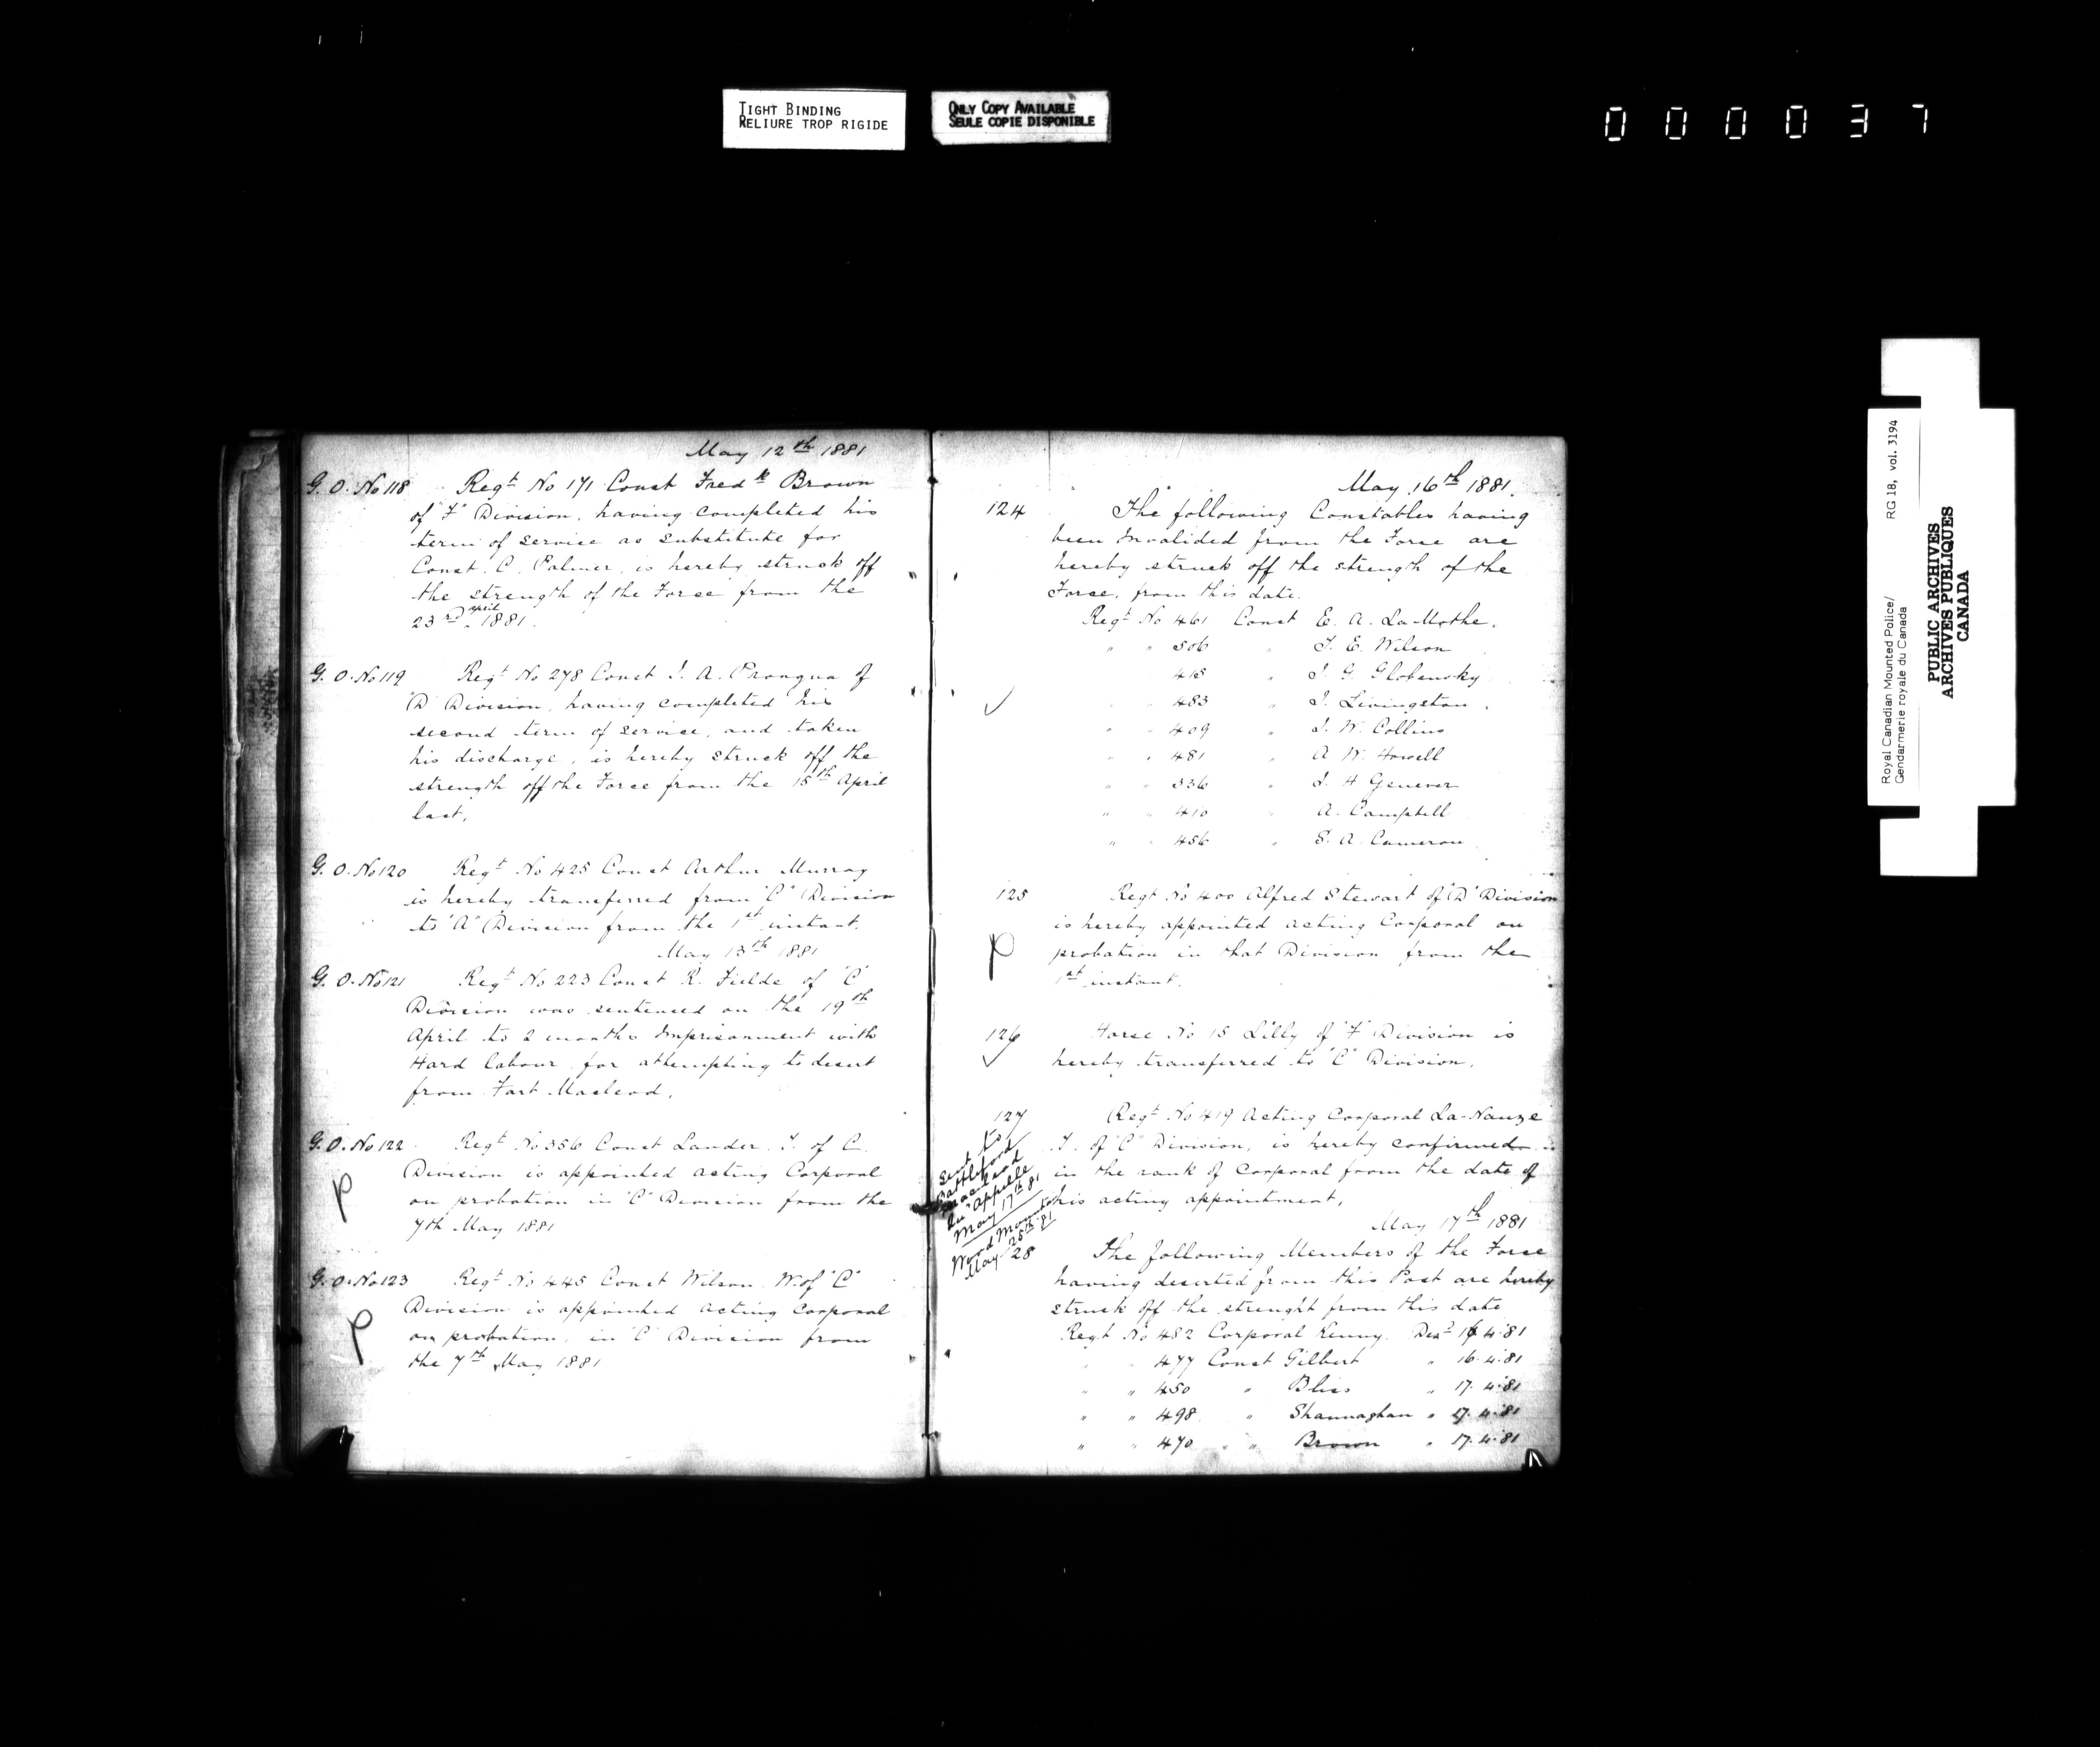 TIGHT BINDING
RELIURE TROP RIGIDE
ONLY COPY AVAILABLE
SEULE COPIE DISPONIBLE
000037
May 12th 1881
G. O. No 118 Regt No 171 Const Fredk Brown
of "F" Division, having completed his
term of service as substitute for
Const. C. Palmer, is hereby struck off
the strength of the Force from the
23rd april 1881.
G. O. No 119 Regt No 278 Const J. A. Prongua of
"D" Division, having completed his
second term of service, and taken
his discharge, is hereby struck off the
strength off the Force from the 15th April
last,
G. O. No 120 Regt No 425 Const Arthur Murray
is hereby transferred from "C" Division
to "A" Division from the 1st instant.
May 13th 1881
G. O. No 121 Regt No 223 Const R. Fielde of "C"
Division was sentenced on the 19th
April to 2 months Imprisonment with
Hard labour for attempting to desert
from Fort Macleod,
G. O. No 122 Regt No 356 Const Lander. J. of C.
Division is appointed acting Corporal
P
on probation in "C" Division from the
7th May 1881
G. O. No 123 Regt No 445 Const Wilson W. of "C"
Division is appointed acting Corporal
P
on probation, in "C" Division from
the 7th May 1881
May 16th 1881.
124 The following Constables having
been Invalided from the Force are
hereby struck off the strength of the
Force, from this date.
Regt No 461 Const E. A. La-Mothe.
" " 506 " J. E. Wilson
" " 415 " J. G Globensky
✓ " " 483 " J. Livingston.
" " 409 " J. W. Collins
" " 481 " A W. Howell
" " 336 " J. H Genever
" " 410 " A. Campbell
" " 456 " S. A. Cameron
125 Regt No 400 Alfred Stewart of "D" Division
is hereby appointed acting Corporal on
P
probation in that Division from the
1st instant.
126 Horse No 15 Lilly of "F" Division is
✓ hereby transferred to "C" Division.
127 Regt No 419 Acting Corporal La-Nauze
J. of "C" Division, is hereby confirmed
in the rank of Corporal from the date of
his acting appointment,
Sent to
Battleford
Macleod
Qu'Appelle
May 17th 81
Wood Mount
May 25th 81
May 17th 1881
28 The following Members of the Force
having deserted from this Post are hereby
struck off the strenght from this date
Regt No 482 Corporal Kenny. Desd 16 4.81
" " 477 Const Gilbert " 16. 4.81
" " 450 " Bliss " 17. 4.81
" " 498 " Shannaghan " 17. 4.81
" " 470 " Brown " 17. 4.81
Royal Canadian Mounted Police/ RG 18, vol. 3194
Gendarmerie royale du Canada
PUBLIC ARCHIVES
ARCHIVES PUBLIQUES
CANADA